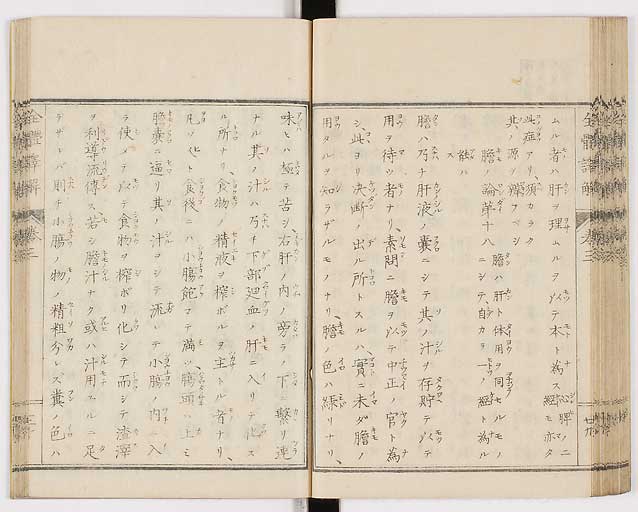 ムル者ハ肝ヲ理ムルヲ以テ本ト為ス
此症アリ、須カラク
其ノ源ヲ辨フベシ
膽ノ論第十八
膽ハ肝ト体用ヲ同セルモノ
ニシテ、自カラ一ノ經ト為ル
能ハ
ス
膽ハ乃チ肝液ノ囊ニシテ其ノ汁ヲ存貯テ以テ
用ヲ待ツ者ナリ、素問ニ膽ヲ以テ中正ノ官ト為
シ、此ヨリ決断ノ出ル所トスルハ、實ニ未ダ膽ノ
用タルヲ知ラザルモノナリ、膽ノ色ハ緑リナリ、
味ヒハ極テ苦シ、右肝ノ内ノ旁ラノ下ニ繋リ連
ナル其ノ汁ハ乃チ下部廻血ノ肝ニ入リテ化ス
ル所ナリ、食物ノ精液ヲ搾ボルヲ主トル者ナリ、
凡ソ化ト食後ニハ小腸飽マテ満ツ、腸頭ハ上ミ
膽囊ニ逼リ其ノ汁ヨシテ流シテ小腸ノ内ニ入
ラ使メテ以テ食物ヲ搾ボリ化シテ而シテ渣滓
ヲ利導流傳ス、若シ膽汁ナク或ハ汁用スルニ足
ラザレバ則チ小腸ノ物ノ精粗分レズ糞ノ色ハ
全體
卷三